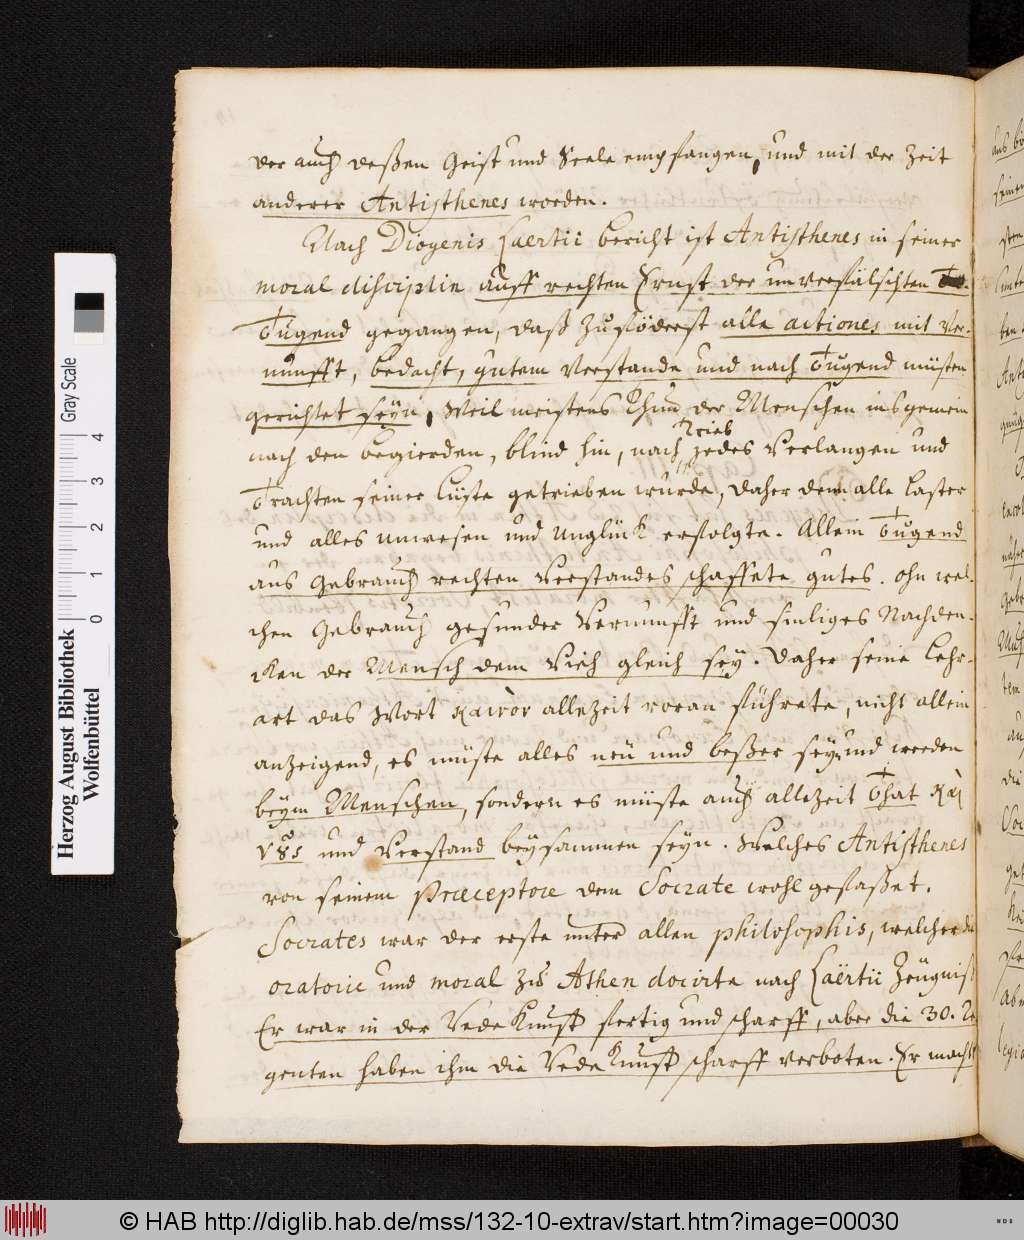 der auch deßen Geist und Seele empfangen, und mit der Zeit
anderer Antisthenes worden.
Nach Diogenis Laertii bericht ist Antisthenes in seiner
moral disciplin auff rechten Ernst der unverfälschten
Tugend gegangen, daß zuföderst alle actiones mit Ver-
nunfft, bedacht, gutem Verstande und nach Tugend müsten
gerichtet seyn, Weil meistens Thun der Menschen ins gemein
nach den begierden, blind hin, nach Trieb jedes Verlangen und
Trachten seiner Lüste getrieben würde, daher denn alle Laster
und alles unwesen und Unglück erfolgte. Allein Tugend
aus Gebrauch rechten Verstandes schaffete gutes. ohn wel-
chen Gebrauch gesunder Vernunfft und Nachden-
ken der Mensch dem Vieh gleich sey. Daher seine Lehr-
art das Wort καινὸν allezeit voran führete, nicht allein
anzeigend, es müste alles neu und beßer seyn und werden
beym Menschen, sondern es müste auch allezeit That καὶ
νȣς und Verstand beysammen seyn. Welches Antisthenes
von seinem Præceptore dem Socrate wohl gefaßet.
Socrates war der erste unter allen philosophis, welcher die
oratorie und moral zu Athen docirte nach Laërtii Zeugniß
Er war in der Rede Kunst fertig und scharff, aber die 30. Re-
genten haben ihm die Rede Kunst scharff verboten. Er macht
Herzog August Bibliothek
Wolfenbüttel
Gray Scale
0 1 2 3 4
© HAB http://diglib.hab.de/mss/132-10-extrav/start.htm?image=00030